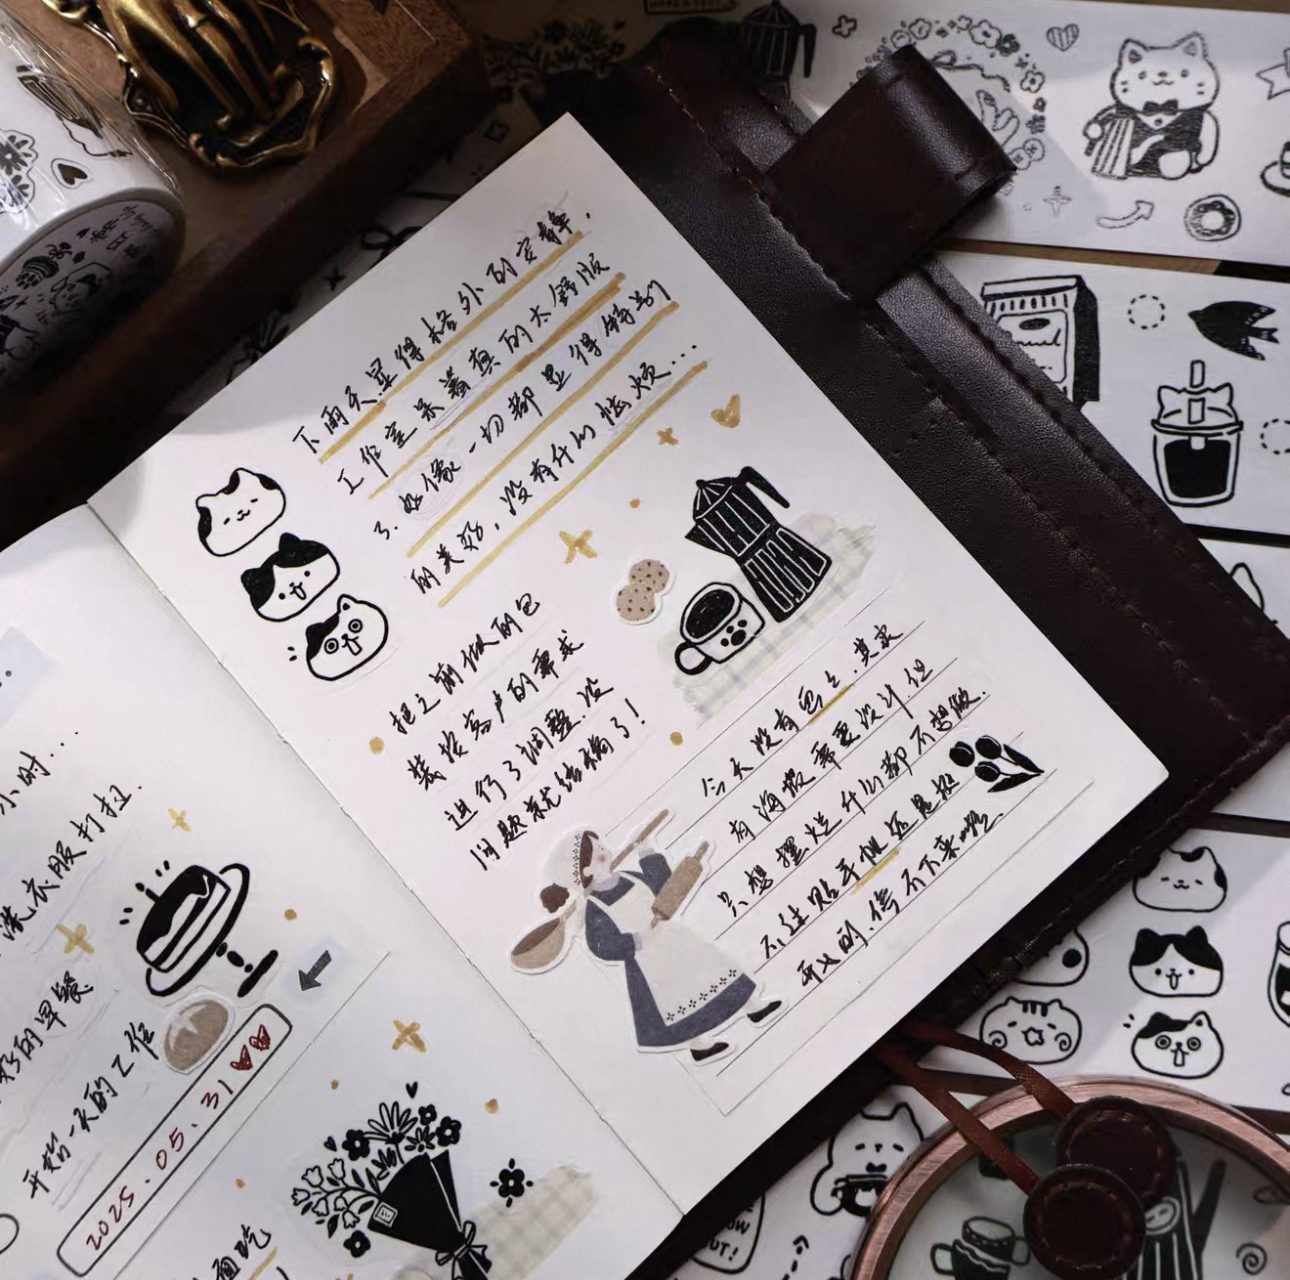 小时...
洗衣服打扫.
的早餐
开始一天的工作
2025.05.31
面吃
下雨天显得格外的安静.
工作室呆着真的太舒服
了.好像一切都显得特别
的美好,没有什么烦恼...
把之前做的包
装按客户的需求
进行了调整.没
问题就结稿了!
今天没有画画.其实
有海报需要设计但
只想摆烂什么都不想做.
不过贴手帐还是挺
开心的.停不下来啦~